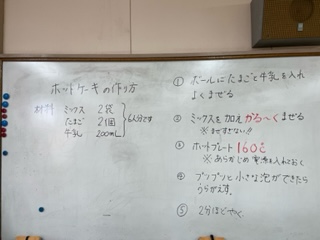 ホットケーキの作り方
材料 ミックス 2袋
たまご 2個
牛乳 200mL
6人分です
① ボールにたまごと牛乳を入れ
よくまぜる
② ミックスを加えかる〜くまぜる
※まぜすぎない!!
③ ホットプレート160℃
※あらかじめ電源を入れておく
④ プツプツと小さな泡ができたら
うらがえす。
⑤ 2分ほどやく